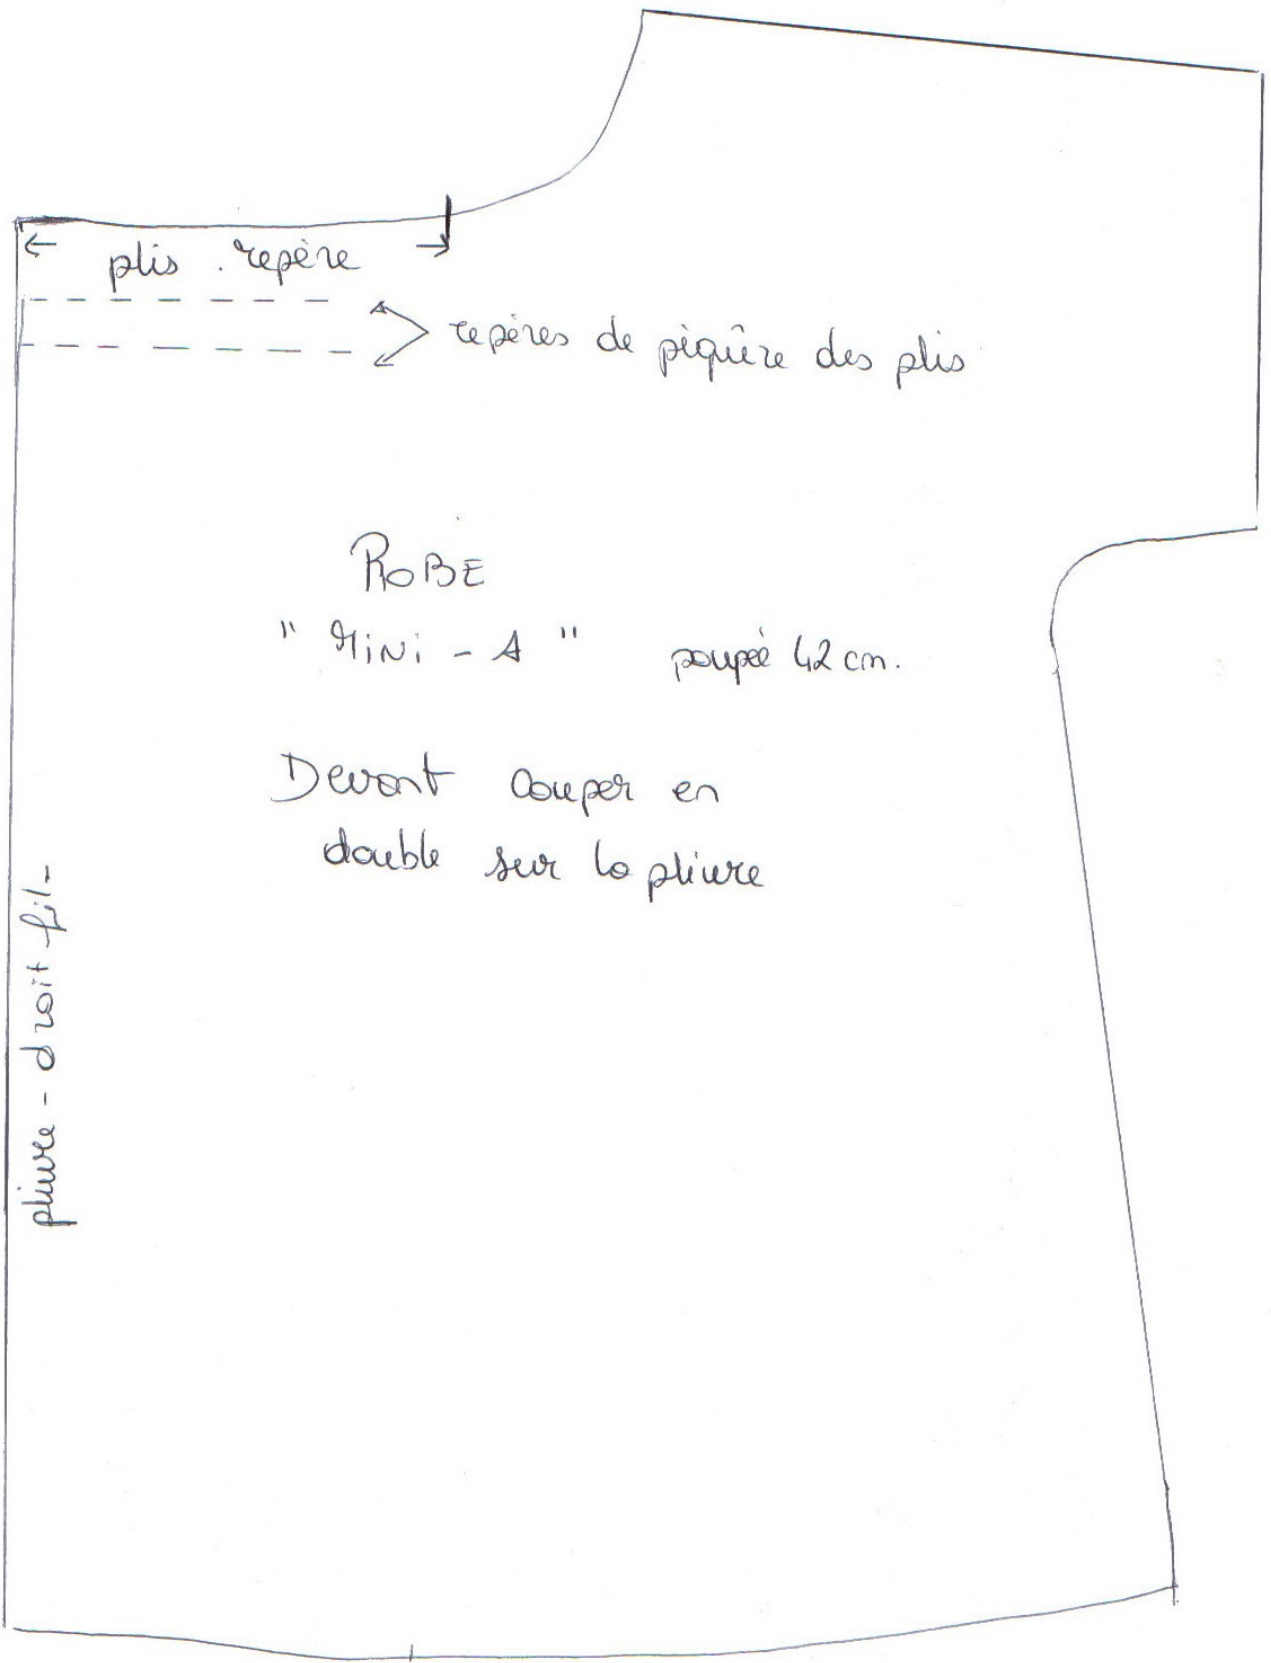 plis . repère
repères de piqûre des plis
ROBE
" MiNi - A " poupée 42 cm.
Devant couper en
double sur la pliure
pliure - droit fil -